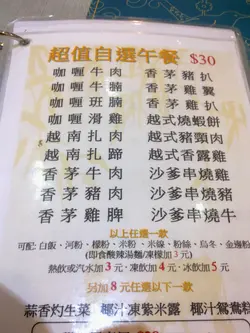 超值自選午餐 $30
咖喱牛肉 香茅豬扒
咖喱牛腩 香茅雞翼
咖喱斑腩 香茅魚柳
咖喱滑雞 越式燒蝦餅
越南扎肉 越式豬頸肉
越南扎蹄 越式香露雞
香茅牛肉 沙爹串燒雞
香茅豬肉 沙爹串燒豬
香茅雞脾 沙爹串燒牛
以上任選一款
可配: 白飯、河粉、檬粉、米粉、米線、粉絲、烏冬、金邊粉
(即食酸辣湯麵/凍檬加3元)
熱飲或汽水加3元、凍飲加4元、冰飲加5元
另加8元任選下列一款
蒜香灼生菜 椰汁凍紫米露 椰汁鴛鴦